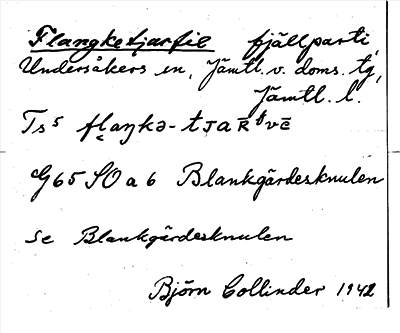 Flangketjarfie fjällparti,
Undersåkers sn, Jämtl. v. doms. tg,
Jämtl. l.
Ts⁵ flaŋkə-tᴊaR̄ᵊvē
G65 SO a 6 Blankgärdesknulen
Se Blankgärdesknulen
Björn Collinder 1942